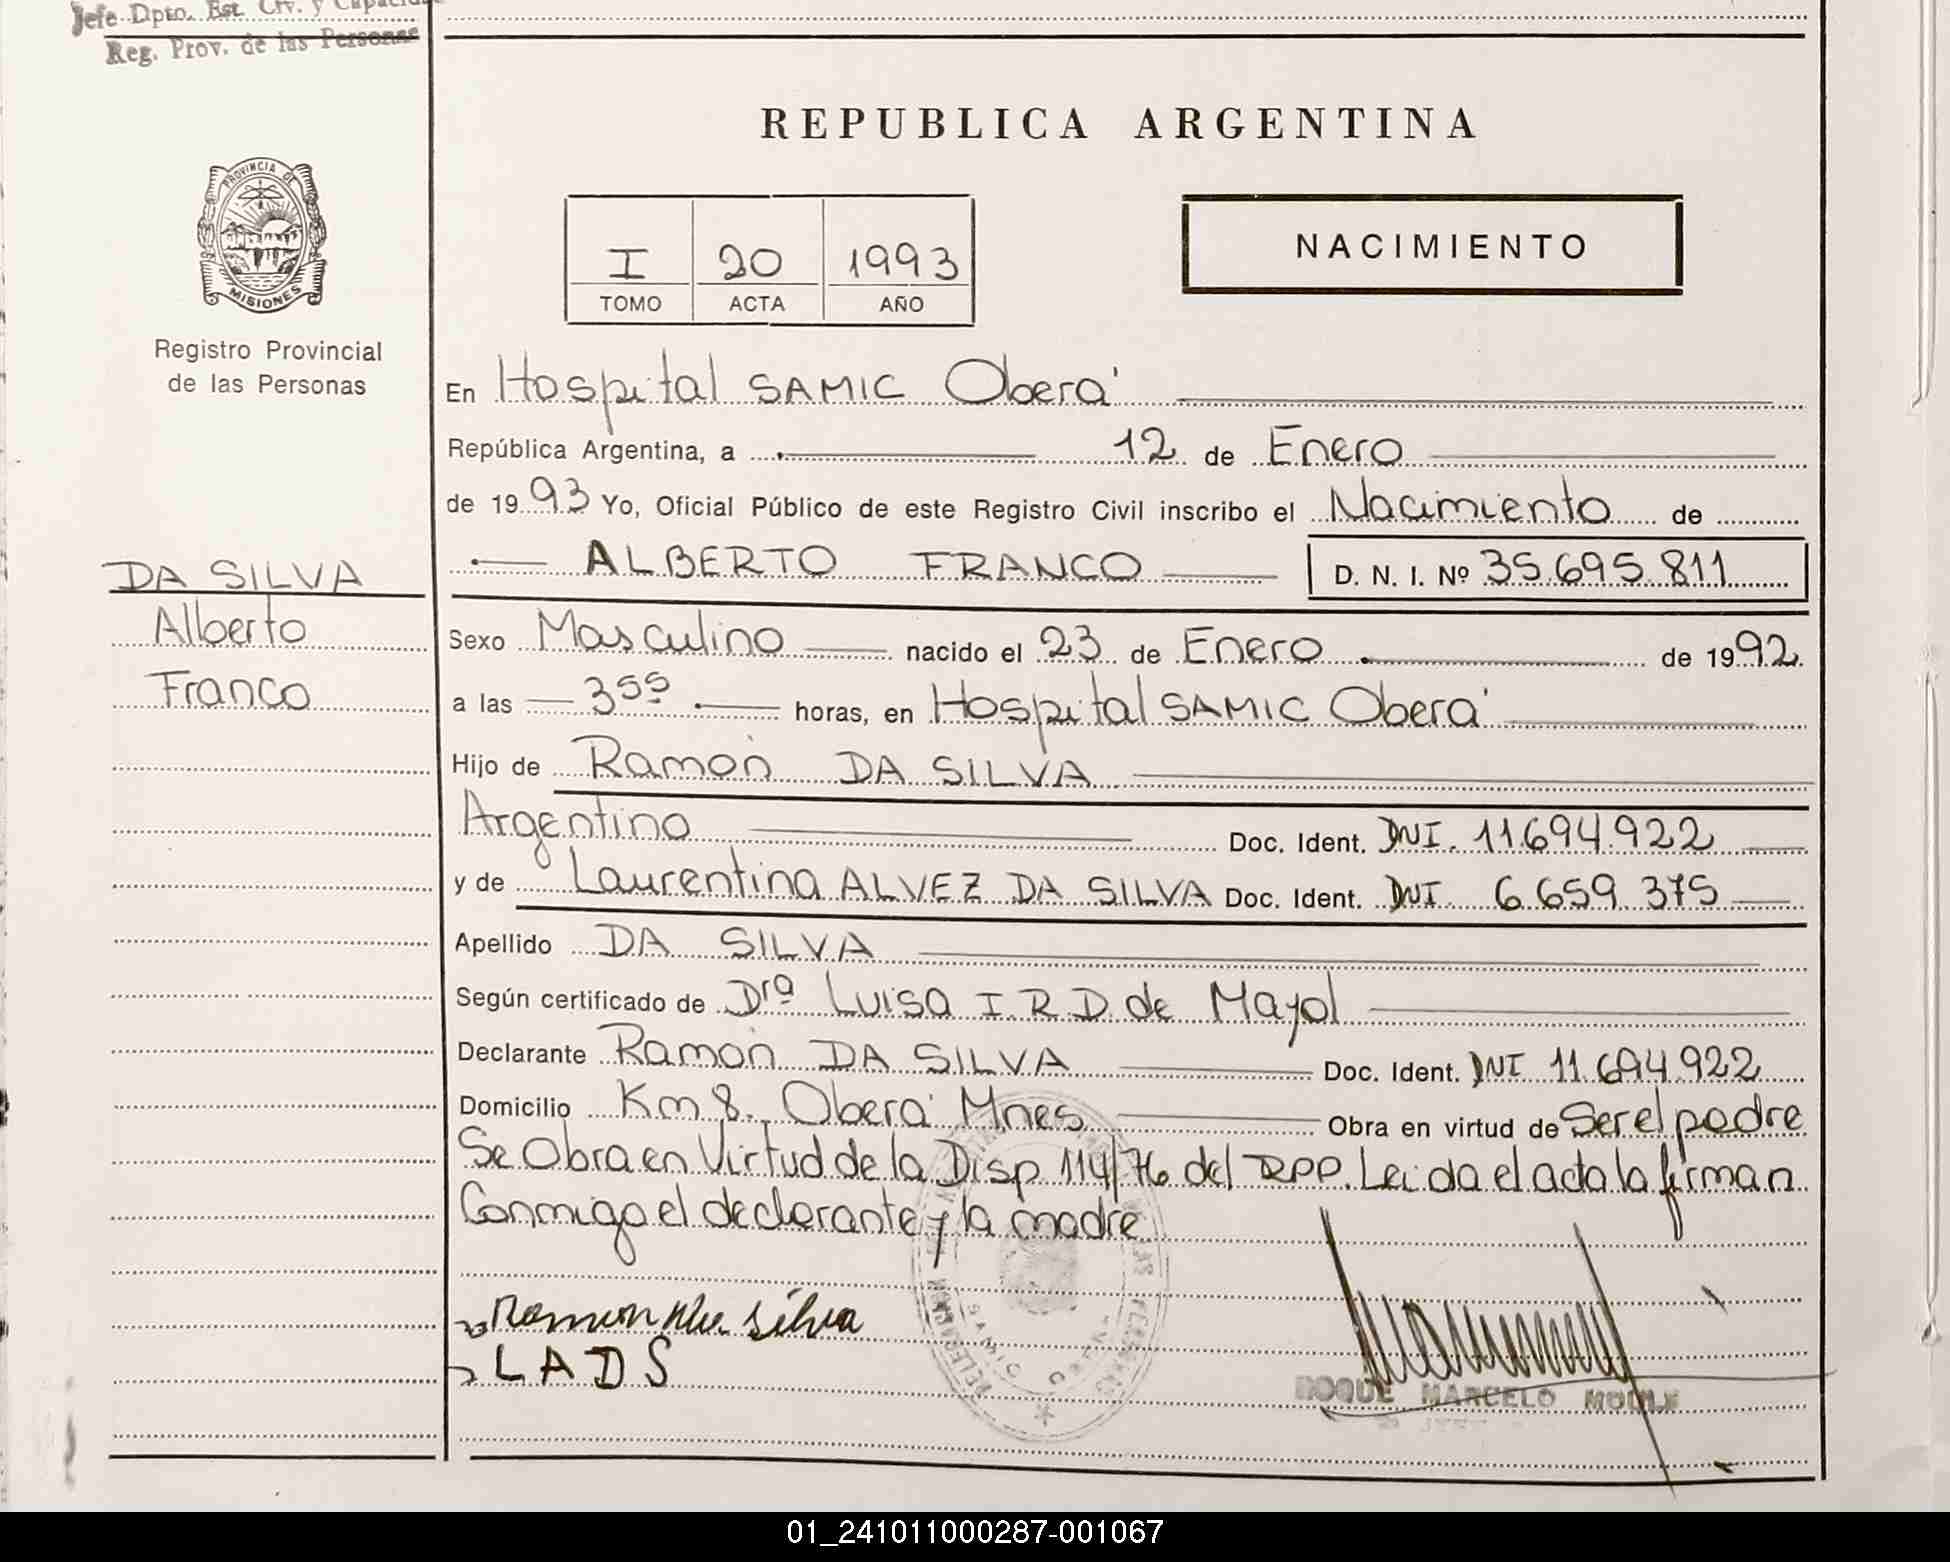 Jefe Dpto. Est. Civ. y Capacidad
Reg. Prov. de las Personas
REPUBLICA ARGENTINA
PROVINCIA DE
MISIONES
Registro Provincial
de las Personas
I 20 1993
TOMO ACTA AÑO
NACIMIENTO
En Hospital SAMIC Oberá
República Argentina, a 12 de Enero
de 1993 Yo, Oficial Público de este Registro Civil inscribo el Nacimiento de
ALBERTO FRANCO D. N. I. Nº 35.695.811
DA SILVA
Alberto
Franco
Sexo Masculino nacido el 23 de Enero de 1992.
a las 3 55 horas, en Hospital SAMIC Oberá
Hijo de Ramón DA SILVA
Argentino Doc. Ident. DNI. 11.694.922
y de Laurentina ALVEZ DA SILVA Doc. Ident. DNI 6.659.375
Apellido DA SILVA
Según certificado de Dra Luisa I.R.D. de Mayol
Declarante Ramón DA SILVA Doc. Ident. DNI 11.694.922
Domicilio Km 8. Oberá Mnes Obra en virtud de Ser el padre
Se Obra en Virtud de la Disp 114/76 del RPP. Leida el acta la firman
Conmigo el declarante y la madre
Ramon Da Silva
L A D S
ROQUE MARCELO
01_241011000287-001067